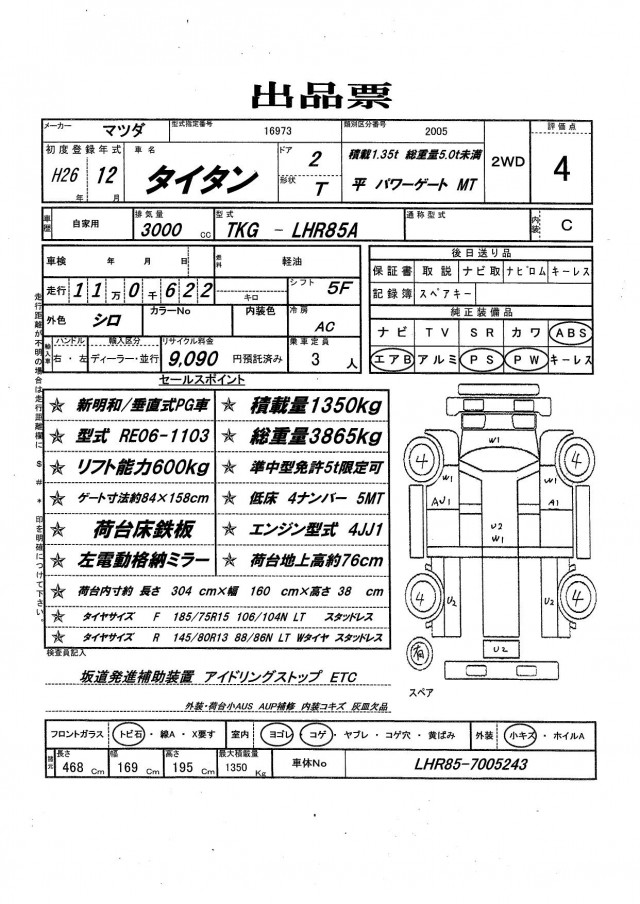 出品票
メーカー マツダ 型式指定番号 16973 類別区分番号 2005 評価点
初度登録年式 車名 ドア 2 積載1.35t 総重量5.0t未満 2WD 4
H26年 12月 タイタン 形状 T 平 パワーゲート MT
車歴 自家用 排気量 3000 CC 型式 TKG - LHR85A 通称型式 内装 C
車検 年 月 日 燃料 軽油 後日送り品
保証書 取説 ナビ取 ナビロム キーレス
走行 11万0千622 キロ シフト 5F 記録簿 スペアキー
外色 シロ カラーNo 内装色 冷房 AC 純正装備品
ナビ TV SR カワ ABS
輸入車 ハンドル 右・左 輸入区分 ディーラー・並行 リサイクル料金 9,090 円預託済み 乗車定員 3 人 エアB アルミ PS PW キーレス
走行距離が不明の場合は走行距離欄に $ # * 印を明確につけて下さい。
セールスポイント
☆ 新明和/垂直式PG車 ☆ 積載量1350kg
☆ 型式 RE06-1103 ☆ 総重量3865kg
☆ リフト能力600kg ☆ 準中型免許5t限定可
☆ ゲート寸法約84×158cm ☆ 低床 4ナンバー 5MT
☆ 荷台床鉄板 ☆ エンジン型式 4JJ1
☆ 左電動格納ミラー ☆ 荷台地上高約76cm
☆ 荷台内寸約 長さ 304 cm×幅 160 cm×高さ 38 cm
☆ タイヤサイズ F 185/75R15 106/104N LT スタッドレス
☆ タイヤサイズ R 145/80R13 88/86N LT Wタイヤ スタッドレス
W1
4 4
W1 W1
AU1 A1
U2
W1
4 4
U2 U2
有 U2
スペア
検査員記入
坂道発進補助装置 アイドリングストップ ETC
外装・荷台小AUS AUP補修 内装コキズ 灰皿欠品
フロントガラス トビ石・線A・X要す 室内 ヨゴレ・コゲ・ヤブレ・コゲ穴・黄ばみ 外装 小キズ・ホイルA
諸元 長さ 468 Cm 幅 169 Cm 高さ 195 Cm 最大積載量 1350 Kg 車体No LHR85-7005243